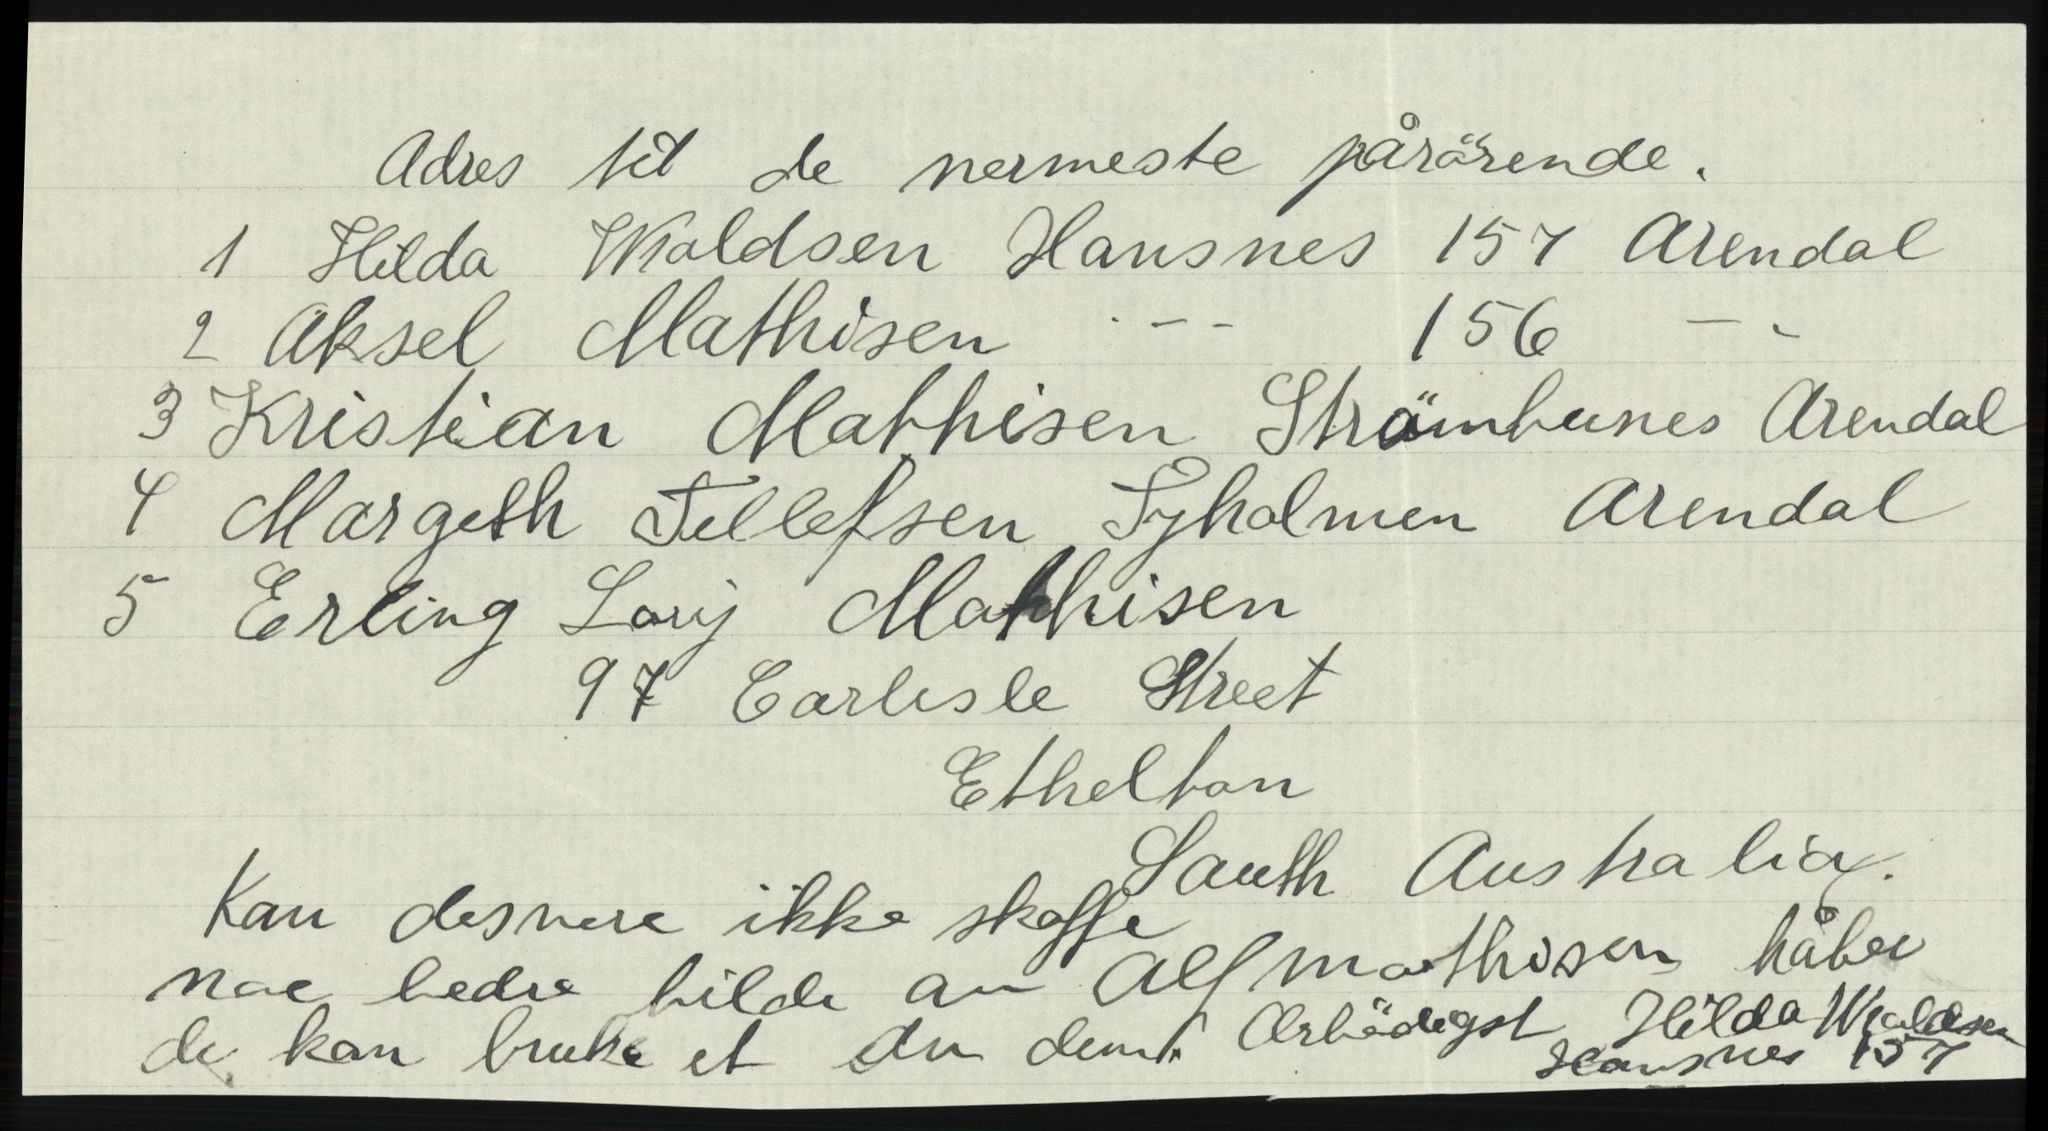 Adres til de nermeste pårörende.
1 Hilda Woldsen Hausnes 157 Arendal
2 Aksel Mathisen - - - 156 - -
3 Kristian Mathisen Strömbunes Arendal
4 Margeth Tellefsen Tyholmen Arendal
5 Erling Lorij Mathisen
97 Carlisle Street
Ethelton
South Australia.
Kan desvere ikke skaffe
noe bedre bilde av Alf Mathisen håber
de kan bruke et av dem. Ærbödigst Hilda Woldsen
Hausnes 157